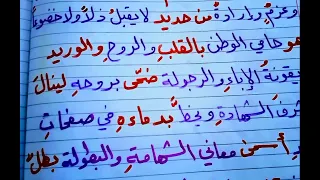 وعزمٍ وإرادةٍ من حديدٍ لا يقبلُ ذلاً ولا خضوعاً
هو حامي الوطنِ بالقلبِ والروحِ والوريدِ
يقونةُ الإباءِ والرجولةِ ضحَّى بروحهِ لينالَ
شرفَ الشهادةِ ويخطَّ بدماءهِ في صفحاتِ
أسمى معاني الشهامةِ والبطولةِ بطلٌ